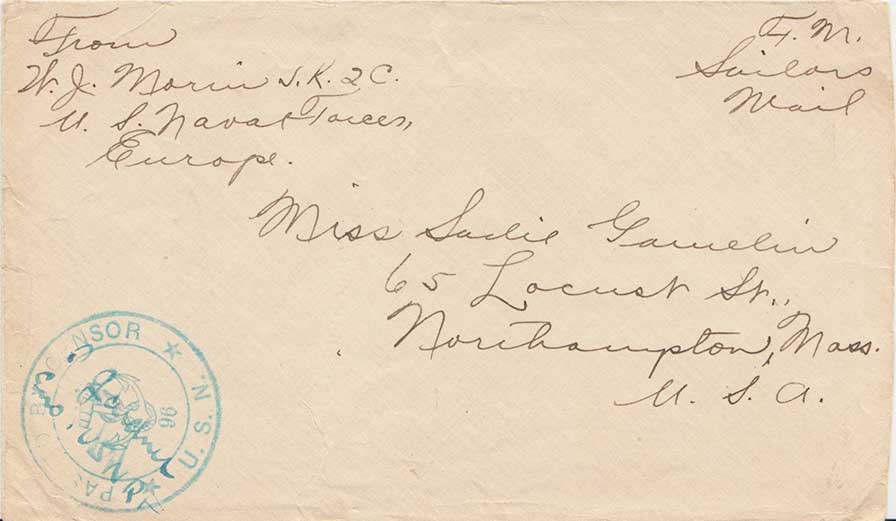 From
W. J. Morin S.K. 2 C.
U. S. Naval Forces,
Europe.
F. M.
Sailors
Mail
Miss Sadie Gamelin
65 Locust St.,
Northampton, Mass.
U. S. A.
PASSED BY CENSOR ★ U. S. N. ★
96